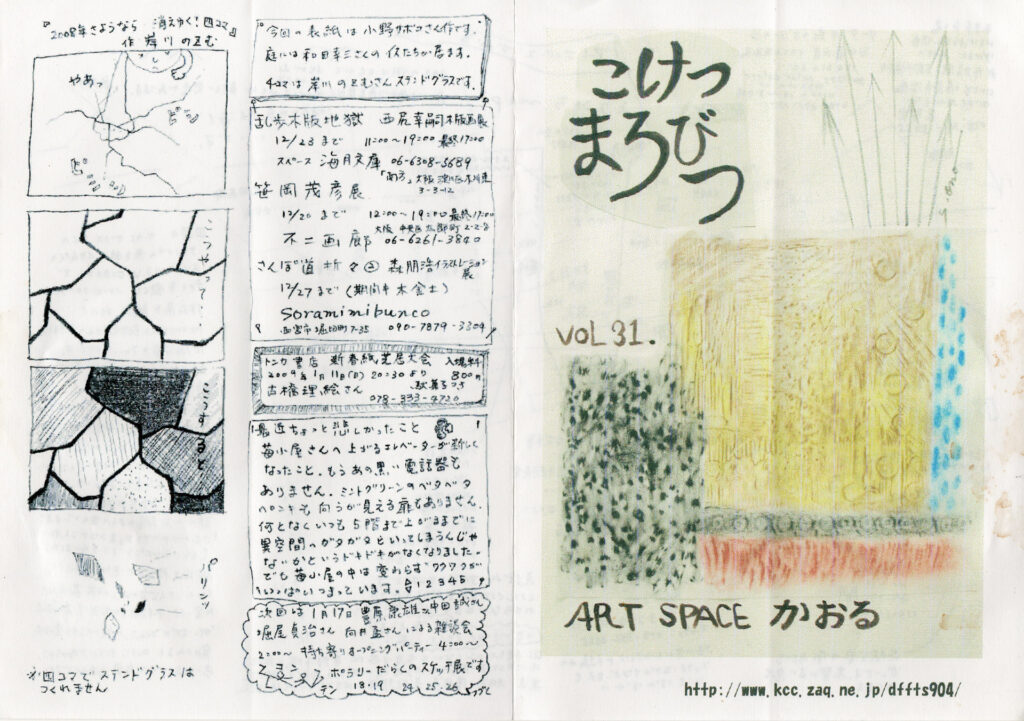 『2008年さようなら 消えゆく!四コマ』
作 岸川 のぞむ
やあっ
こうやって…
こうすると
パリンッ
※四コマでステンドグラスは
つくれません
今回の表紙は小野サボコさん作です。
庭には和田幸三さんの作たちが居ます。
4コマは岸川のぞむさん ステンドグラスです。
乱歩木版地獄 西尻幸嗣木版画展
12/23まで 11:00〜19:00 最終17:00
スペース 海月文庫 06-6308-5689
「南方」大阪 淀川区木川東
3-3-12
笹岡茂彦展
12/20 まで 12:00〜19:00 最終17:00
大阪 中央区 2-2-8
不二画廊 06-6261-3840
さんぽ道 折々② 森朋浩イラストレーション展
12/27まで (期間中 木金土)
Soramimibunco
西宮市堀切町7-35 090-7879-3304
トンカ書店 新春紙芝居大会 入場料
2009年1月11日(日) 20:30より 800円
古橋理絵さん 駄菓子つき
078-333-4720
最近ちょっと悲しかったこと
苺小屋さんへ上がるエレベーターが新しく
なったこと。もうあの黒い電話器も
ありません。ミントグリーンのベタベタ
ペンキも 向うが見える扉もありません。
何となくいつも5階まで上がるまでに
異空間へガタガタといってしまうんじゃ
ないかというドキドキがなくなりました。
でも苺小屋の中は変わらずワクワクが
いっぱいつまっています。 12345
次回は1月17日 豊原康雄さん 中田誠さん
堀尾貞治さん 向井孟さんによる雑談会
2:00〜 持ち寄りオープニングパーティー 4:00〜
ホラリーだらんのスケッチ展です
18・19 24・25・26
こけつ
まろびつ
S.ono
VOL 31.
ART SPACE かおる
http://www.kcc.zaq.ne.jp/dffts904/